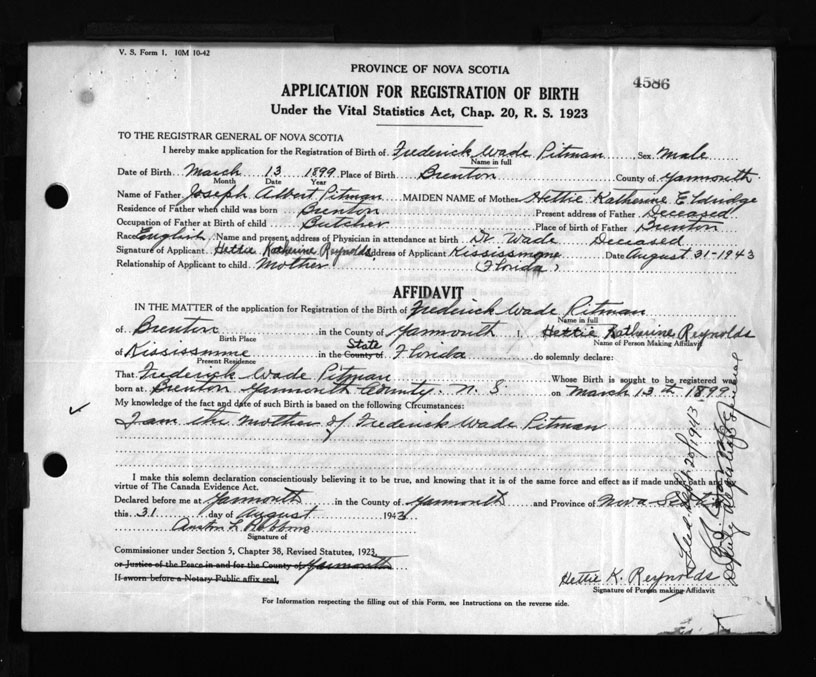 V. S. Form 1. 10M 10-42
PROVINCE OF NOVA SCOTIA
4586
APPLICATION FOR REGISTRATION OF BIRTH
Under the Vital Statistics Act, Chap. 20, R. S. 1923
TO THE REGISTRAR GENERAL OF NOVA SCOTIA
I hereby make application for the Registration of Birth of Frederick Wade Pitman, Sex Male
Name in full
Date of Birth March 13 1899 Place of Birth Brenton County of Yarmouth
Month Date Year
Name of Father Joseph Albert Pitman MAIDEN NAME of Mother Hettie Katherine Eldridge
Residence of Father when child was born Brenton Present address of Father Deceased
Occupation of Father at Birth of child Butcher Place of birth of Father Brenton
Race English Name and present address of Physician in attendance at birth Dr Wade Deceased
Signature of Applicant Hettie Katherine Reynolds Address of Applicant Kississmme Date August 31-1943
Relationship of Applicant to child Mother (Florida)
AFFIDAVIT
IN THE MATTER of the application for Registration of the Birth of Frederick Wade Pitman
Name in full
of Brenton in the County of Yarmouth I, Hettie Katherine Reynolds
Birth Place Name of Person Making Affidavit
State
of Kississmme in the County of Florida do solemnly declare:
Present Residence
That Frederick Wade Pitman Whose Birth is sought to be registered was
born at Brenton Yarmouth County. N. S. on March 13th 1899
My knowledge of the fact and date of such Birth is based on the following Circumstances:
I am the Mother of Frederick Wade Pitman
I make this solemn declaration conscientiously believing it to be true, and knowing that it is of the same force and effect as if made under oath and by
virtue of The Canada Evidence Act.
Declared before me at Yarmouth in the County of Yarmouth and Province of Nova Scotia
this 31 day of August 1943
Austin L Robbins
Signature of
Commissioner under Section 5, Chapter 38, Revised Statutes, 1923,
or Justice of the Peace in and for the County of Yarmouth
If sworn before a Notary Public affix seal,
Hettie K. Reynolds
Signature of Person making Affidavit
For Information respecting the filling out of this Form, see Instructions on the reverse side.
1943
Deputy Registrar General